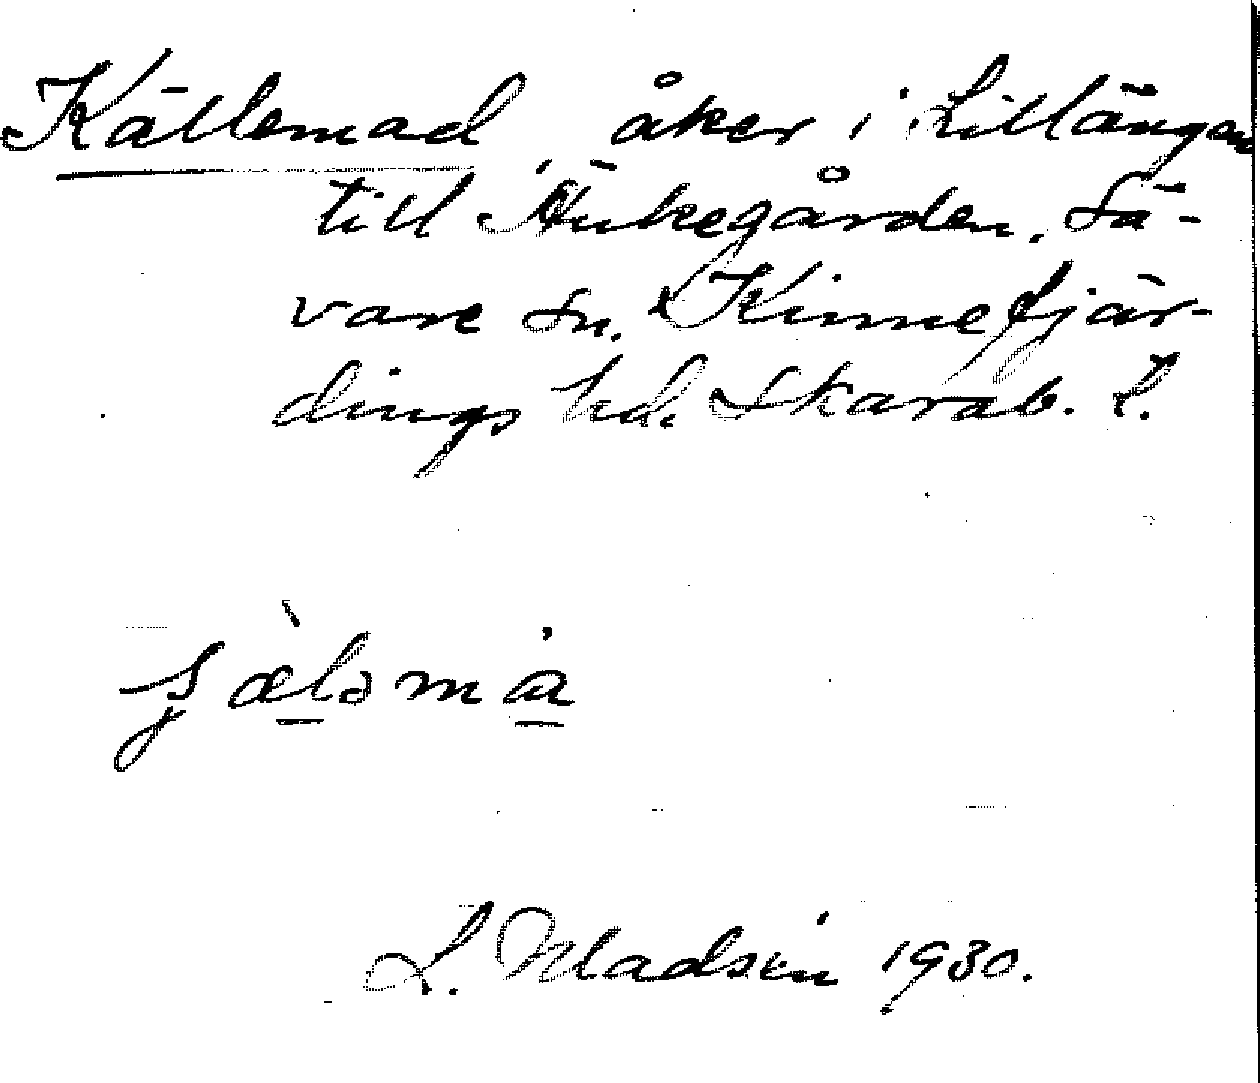 Källemad, åker i Lillängen
till Änkegården, Sä-
vare sn. Kinnefjär-
dings hd. Skarab. l.
L. Madsén 1930.